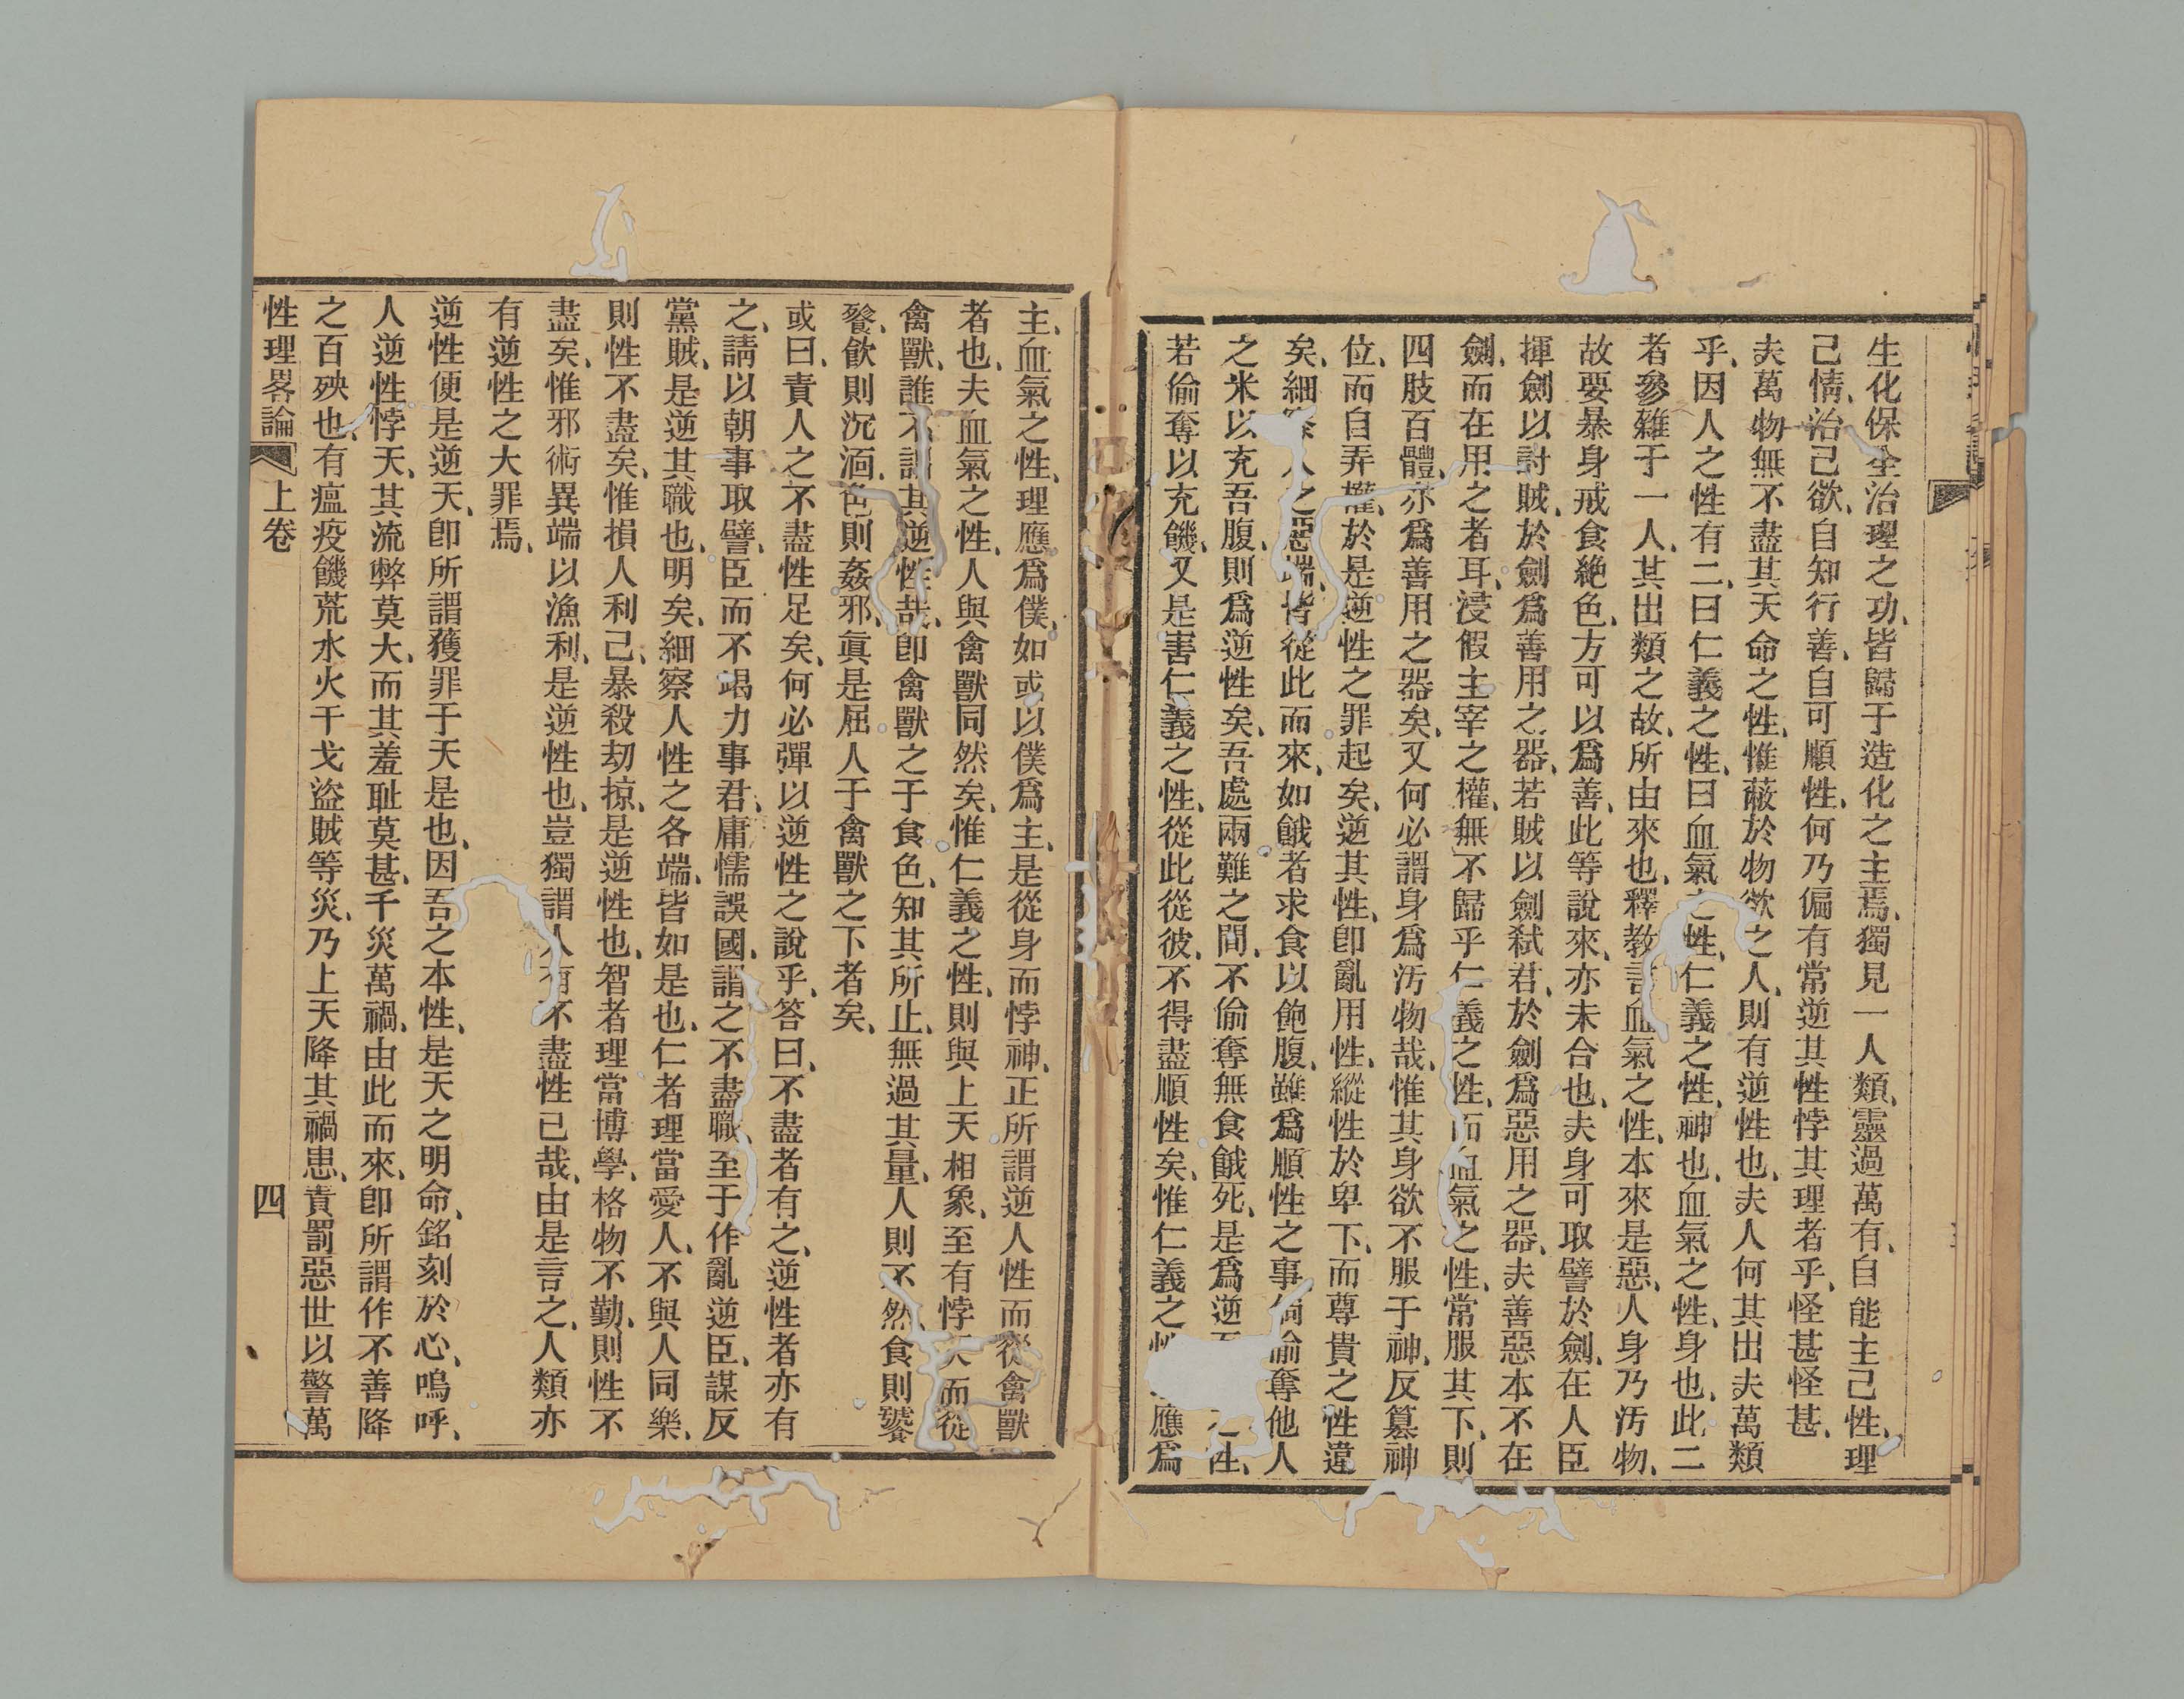 生化保全治理之功、皆歸于造化之主焉、獨見一人類、靈過萬有、自能主己性、理
己情、治己欲、自知行善、自可順性、何乃偏有常逆其性悖其理者乎、怪甚怪甚、
夫萬物無不盡其天命之性、惟蔽於物欲之人、則有逆性也、夫人何其出夫萬類
乎、因人之性有二、曰仁義之性、曰血氣之性、仁義之性、神也、血氣之性、身也、此二
者參雜于一人、其出類之故、所由來也、釋教言血氣之性、本來是惡、人身乃汚物、
故要暴身戒食絶色、方可以爲善、此等說來、亦未合也、夫身可取譬於劍、在人臣
揮劍以討賊、於劍爲善用之器、若賊以劍弒君、於劍爲惡用之器、夫善惡本不在
劍、而在用之者耳、浸假主宰之權、無不歸乎仁義之性、而血氣之性、常服其下、則
四肢百體、亦爲善用之器矣、又何必謂身爲汚物哉、惟其身欲不服于神、反簒神
位、而自弄權、於是逆性之罪起矣、逆其性、卽亂用性、縱性於卑下、而尊貴之性違
矣、細人之惡端、皆從此而來、如餓者求食以飽腹、雖爲順性之事、偷奪他人
之米以充吾腹、則爲逆性矣、吾處兩難之間、不偷奪無食餓死、是爲逆之性、
若偷奪以充饑、又是害仁義之性、從此從彼、不得盡順性矣、惟仁義之性應爲
主、血氣之性、理應爲僕、如或以僕爲主、是從身而悖神、正所謂逆人性而從禽獸
者也、夫血氣之性、人與禽獸同然矣、惟仁義之性、則與上天相象、至有悖天而從
禽獸、誰不謂其逆性哉、卽禽獸之于食色、知其所止、無過其量、人則不然、食則饕
餮、飮則沉湎、色則姦邪、眞是屈人于禽獸之下者矣、
或曰、責人之不盡性足矣、何必彈以逆性之說乎、答曰、不盡者有之、逆性者亦有
之、請以朝事取譬、臣而不竭力事君、庸懦誤國、謂之不盡職、至于作亂逆臣、謀反
黨賊、是逆其職也、明矣、細察人性之各端、皆如是也、仁者理當愛人、不與人同樂、
則性不盡矣、惟損人利己、暴殺刧掠、是逆性也、智者理當博學、格物不勤、則性不
盡矣、惟邪術異端以漁利、是逆性也、豈獨謂人有不盡性已哉、由是言之、人類亦
有逆性之大罪焉、
逆性便是逆天、卽所謂獲罪于天是也、因吾之本性、是天之明命、銘刻於心、嗚呼、
人逆性悖天、其流弊莫大、而其羞耻莫甚、千災萬禍、由此而來、卽所謂作不善降
之百殃也、有瘟疫饑荒水火干戈盜賊等災、乃上天降其禍患、責罰惡世以警萬
性理畧論 上卷 四